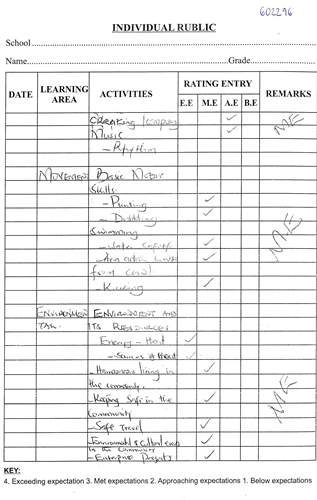 602296
INDIVIDUAL RUBLIC
School
Name Grade
DATE LEARNING AREA ACTIVITIES RATING ENTRY REMARKS
E.E M.E A.E B.E
Creating
Music
- Rhythm
M.E
MOVEMENT Basic Motor
Skills.
- Punting
- Dribbling
Swimming
- Water safety
- Kicking
M.E
ENVIRONMENT AND
ITS RESOURCES
Energy - Heat
- Sources of Heat
living in
the community.
- Keeping Safe in the
Community
- Safe Travel
in the Community
- Enterprise Projects
M.E
KEY:
4. Exceeding expectation 3. Met expectations 2. Approaching expectations 1. Below expectations